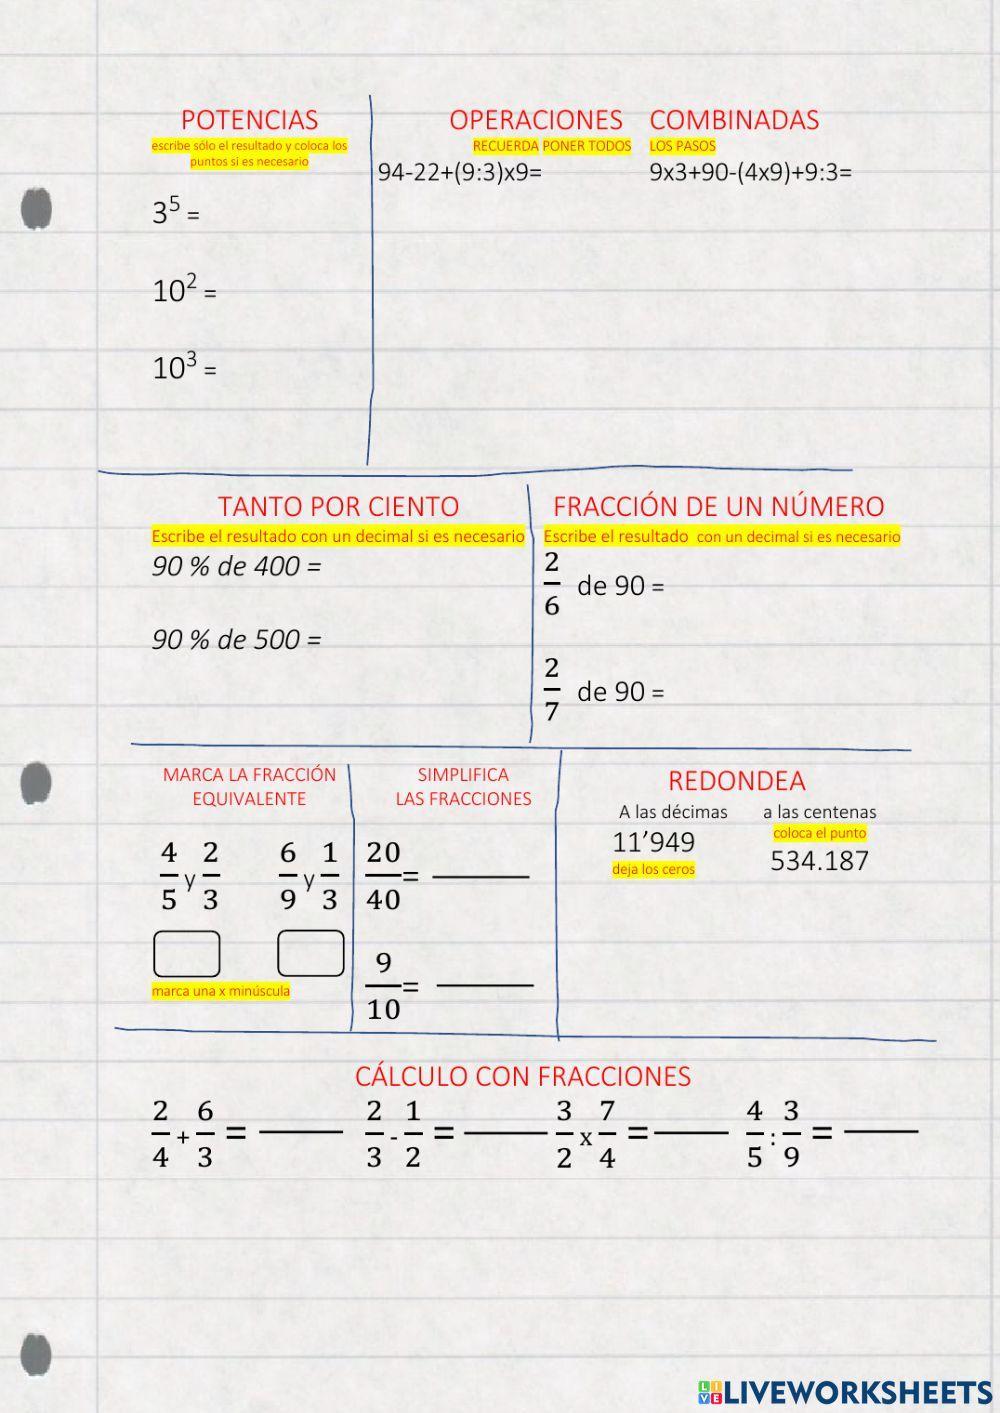 POTENCIAS
escribe sólo el resultado y coloca los
puntos si es necesario
3⁵ =
10² =
10³ =
OPERACIONES COMBINADAS
RECUERDA PONER TODOS LOS PASOS
94-22+(9:3)x9=
9x3+90-(4x9)+9:3=
TANTO POR CIENTO
Escribe el resultado con un decimal si es necesario
90 % de 400 =
90 % de 500 =
FRACCIÓN DE UN NÚMERO
Escribe el resultado con un decimal si es necesario
2/6 de 90 =
2/7 de 90 =
MARCA LA FRACCIÓN
EQUIVALENTE
4/5 y 2/3
6/9 y 1/3
marca una x minúscula
SIMPLIFICA
LAS FRACCIONES
20/40=
9/10=
REDONDEA
A las décimas
11’949
deja los ceros
a las centenas
coloca el punto
534.187
CÁLCULO CON FRACCIONES
2/4 + 6/3 = 2/3 - 1/2 = 3/2 x 7/4 = 4/5 : 3/9 =
LIVEWORKSHEETS